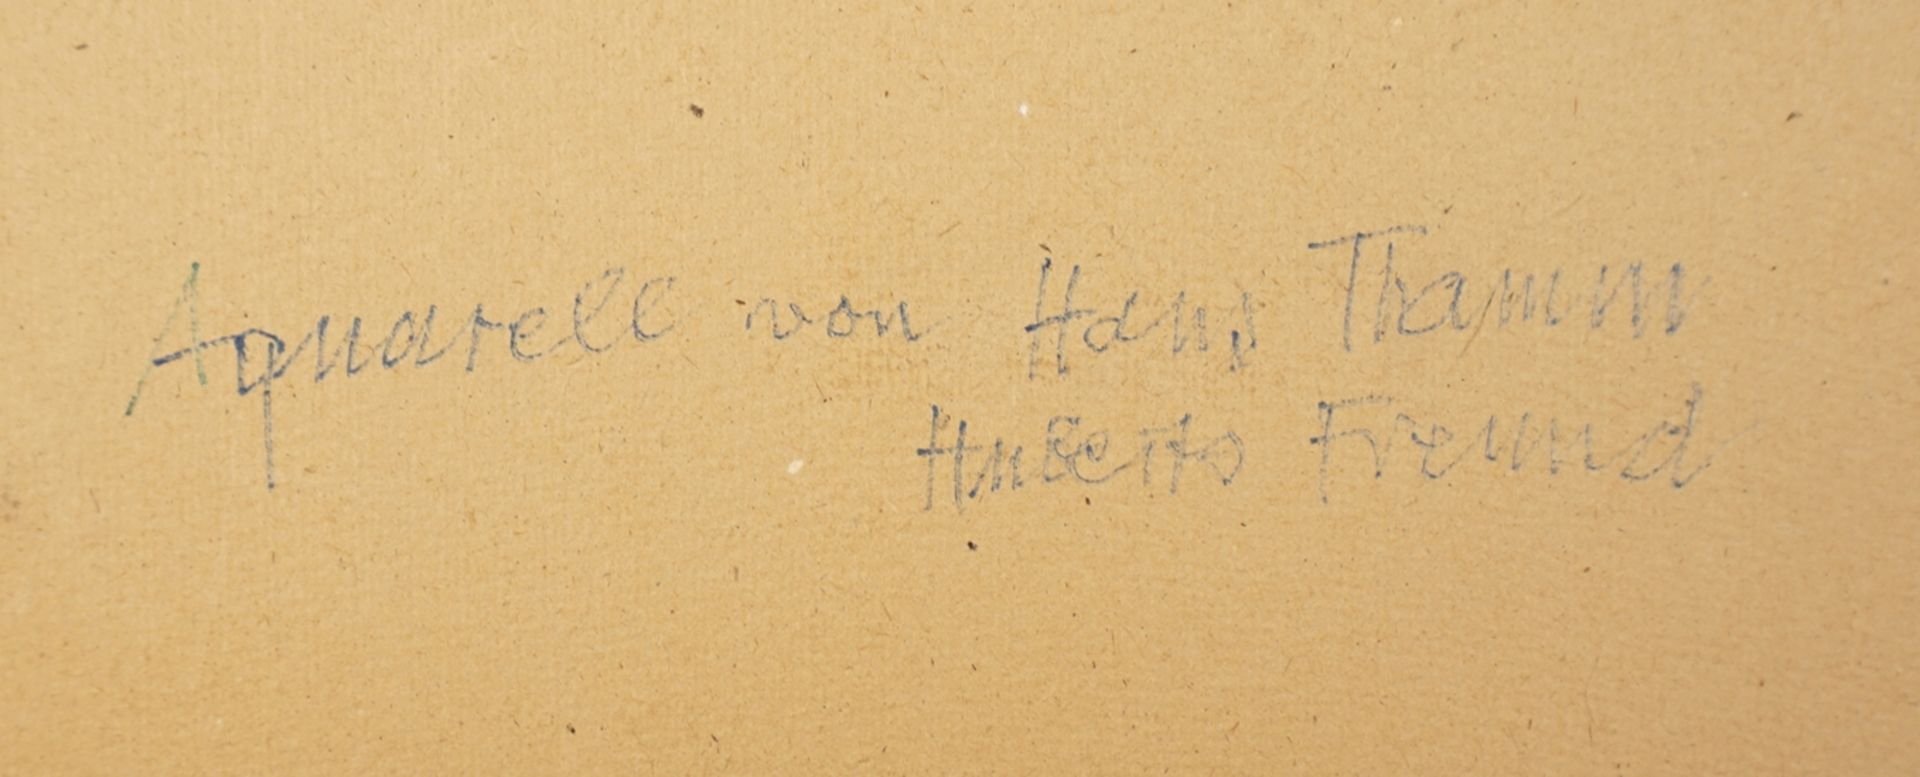 Aquarell von Hans Thamm
Huberts Freund